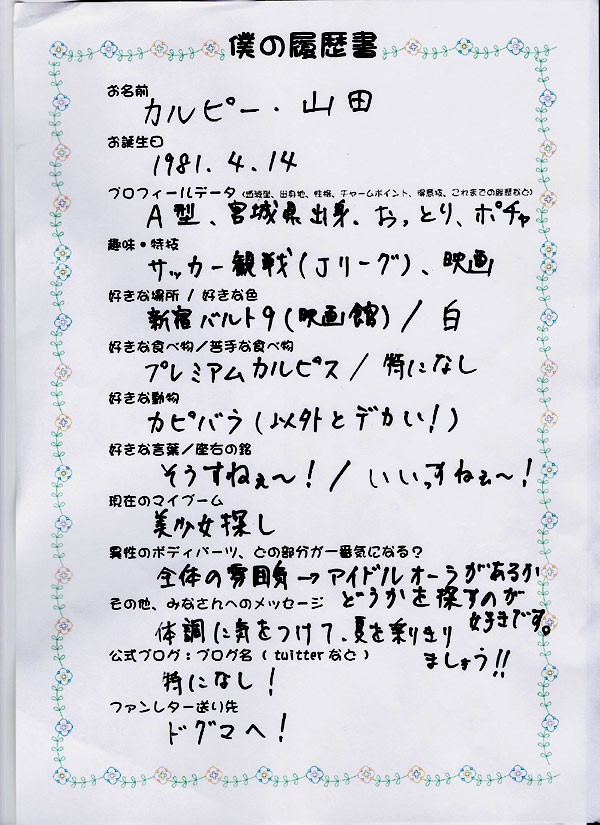 僕の履歴書
お名前
カルピー・山田
お誕生日
1981.4.14
プロフィールデータ（血液型、出身地、性格、チャームポイント、得意技、これまでの経歴など）
A型、宮城県出身、おっとり、ポチャ
趣味・特技
サッカー観戦(Jリーグ)、映画
好きな場所 / 好きな色
新宿バルト9(映画館) / 白
好きな食べ物/苦手な食べ物
プレミアムカルピス / 特になし
好きな動物
カピバラ(以外とデカい!)
好きな言葉/座右の銘
そうすねぇ〜! / いいっすねぇ〜!
現在のマイブーム
美少女探し
異性のボディパーツ、どの部分が一番気になる?
全体の雰囲気→アイドルオーラがあるか
どうかを探すのが
好きです。
その他、みなさんへのメッセージ
体調に気をつけて、夏を乗りきり
ましょう!!
公式ブログ:ブログ名 ( tuitterなど )
特になし!
ファンレター送り先
ドグマへ!